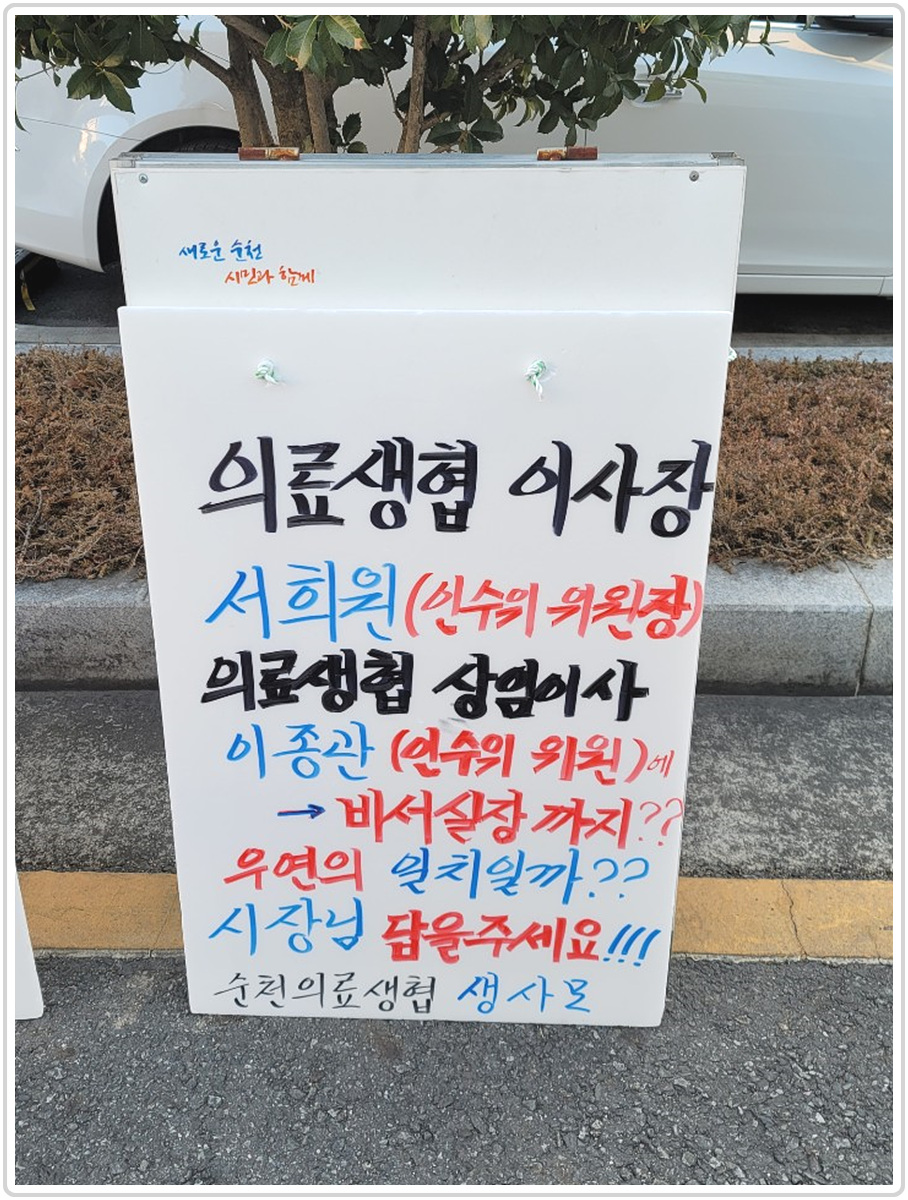 새로운 순천
시민과 함께
의료생협 이사장
서희원(인수위 위원장)
의료생협 상임이사
이종관 (인수위 위원)에
→ 비서실장 까지??
우연의 일치일까??
시장님 답을주세요!!!
순천의료생협 생사모